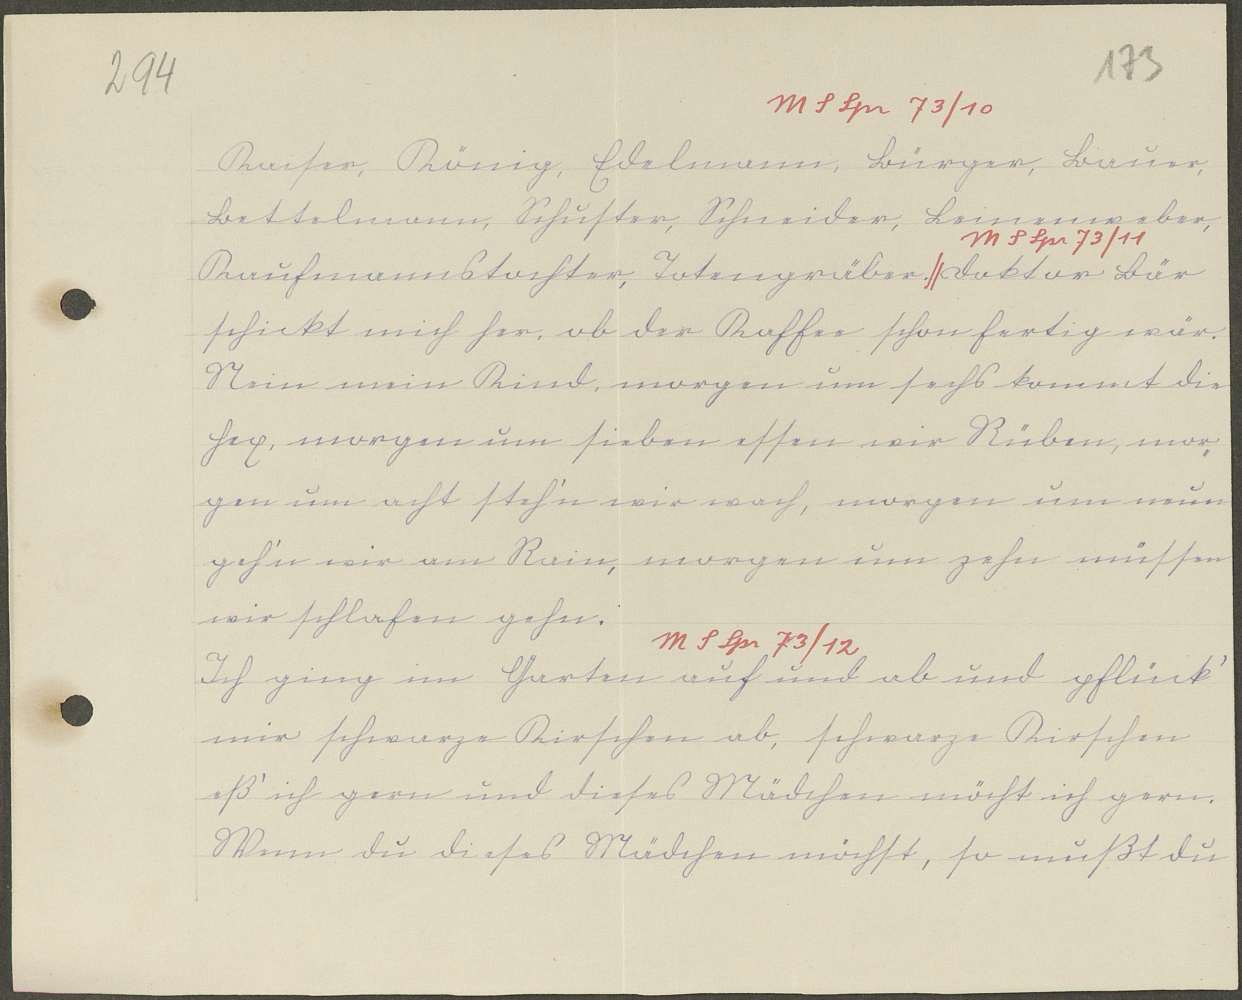 294
173
M S Spr 73/10
Kaiser, König, Edelmann, Bürger, Bauer,
Bettelmann, Schuster, Schneider, Leinenweber,
M S Spr 73/11
Kaufmannstochter, Totengräber.//Doktor Bär
schickt mich her, ob der Kaffee schon fertig wär.
Nein mein Kind, morgen um sechs kommt die
Hex, morgen um sieben essen wir Rüben, mor-
gen um acht steh'n wir wach, morgen um neun
geh'n wir am Rain, morgen um zehn müssen
wir schlafen gehn.
M S Spr 73/12
Ich ging im Garten auf und ab und pflück'
mir schwarze Kirschen ab, schwarze Kirschen
eß' ich gern und dieses Mädchen möcht ich gern.
Wenn du dieses Mädchen möchst, so mußt du